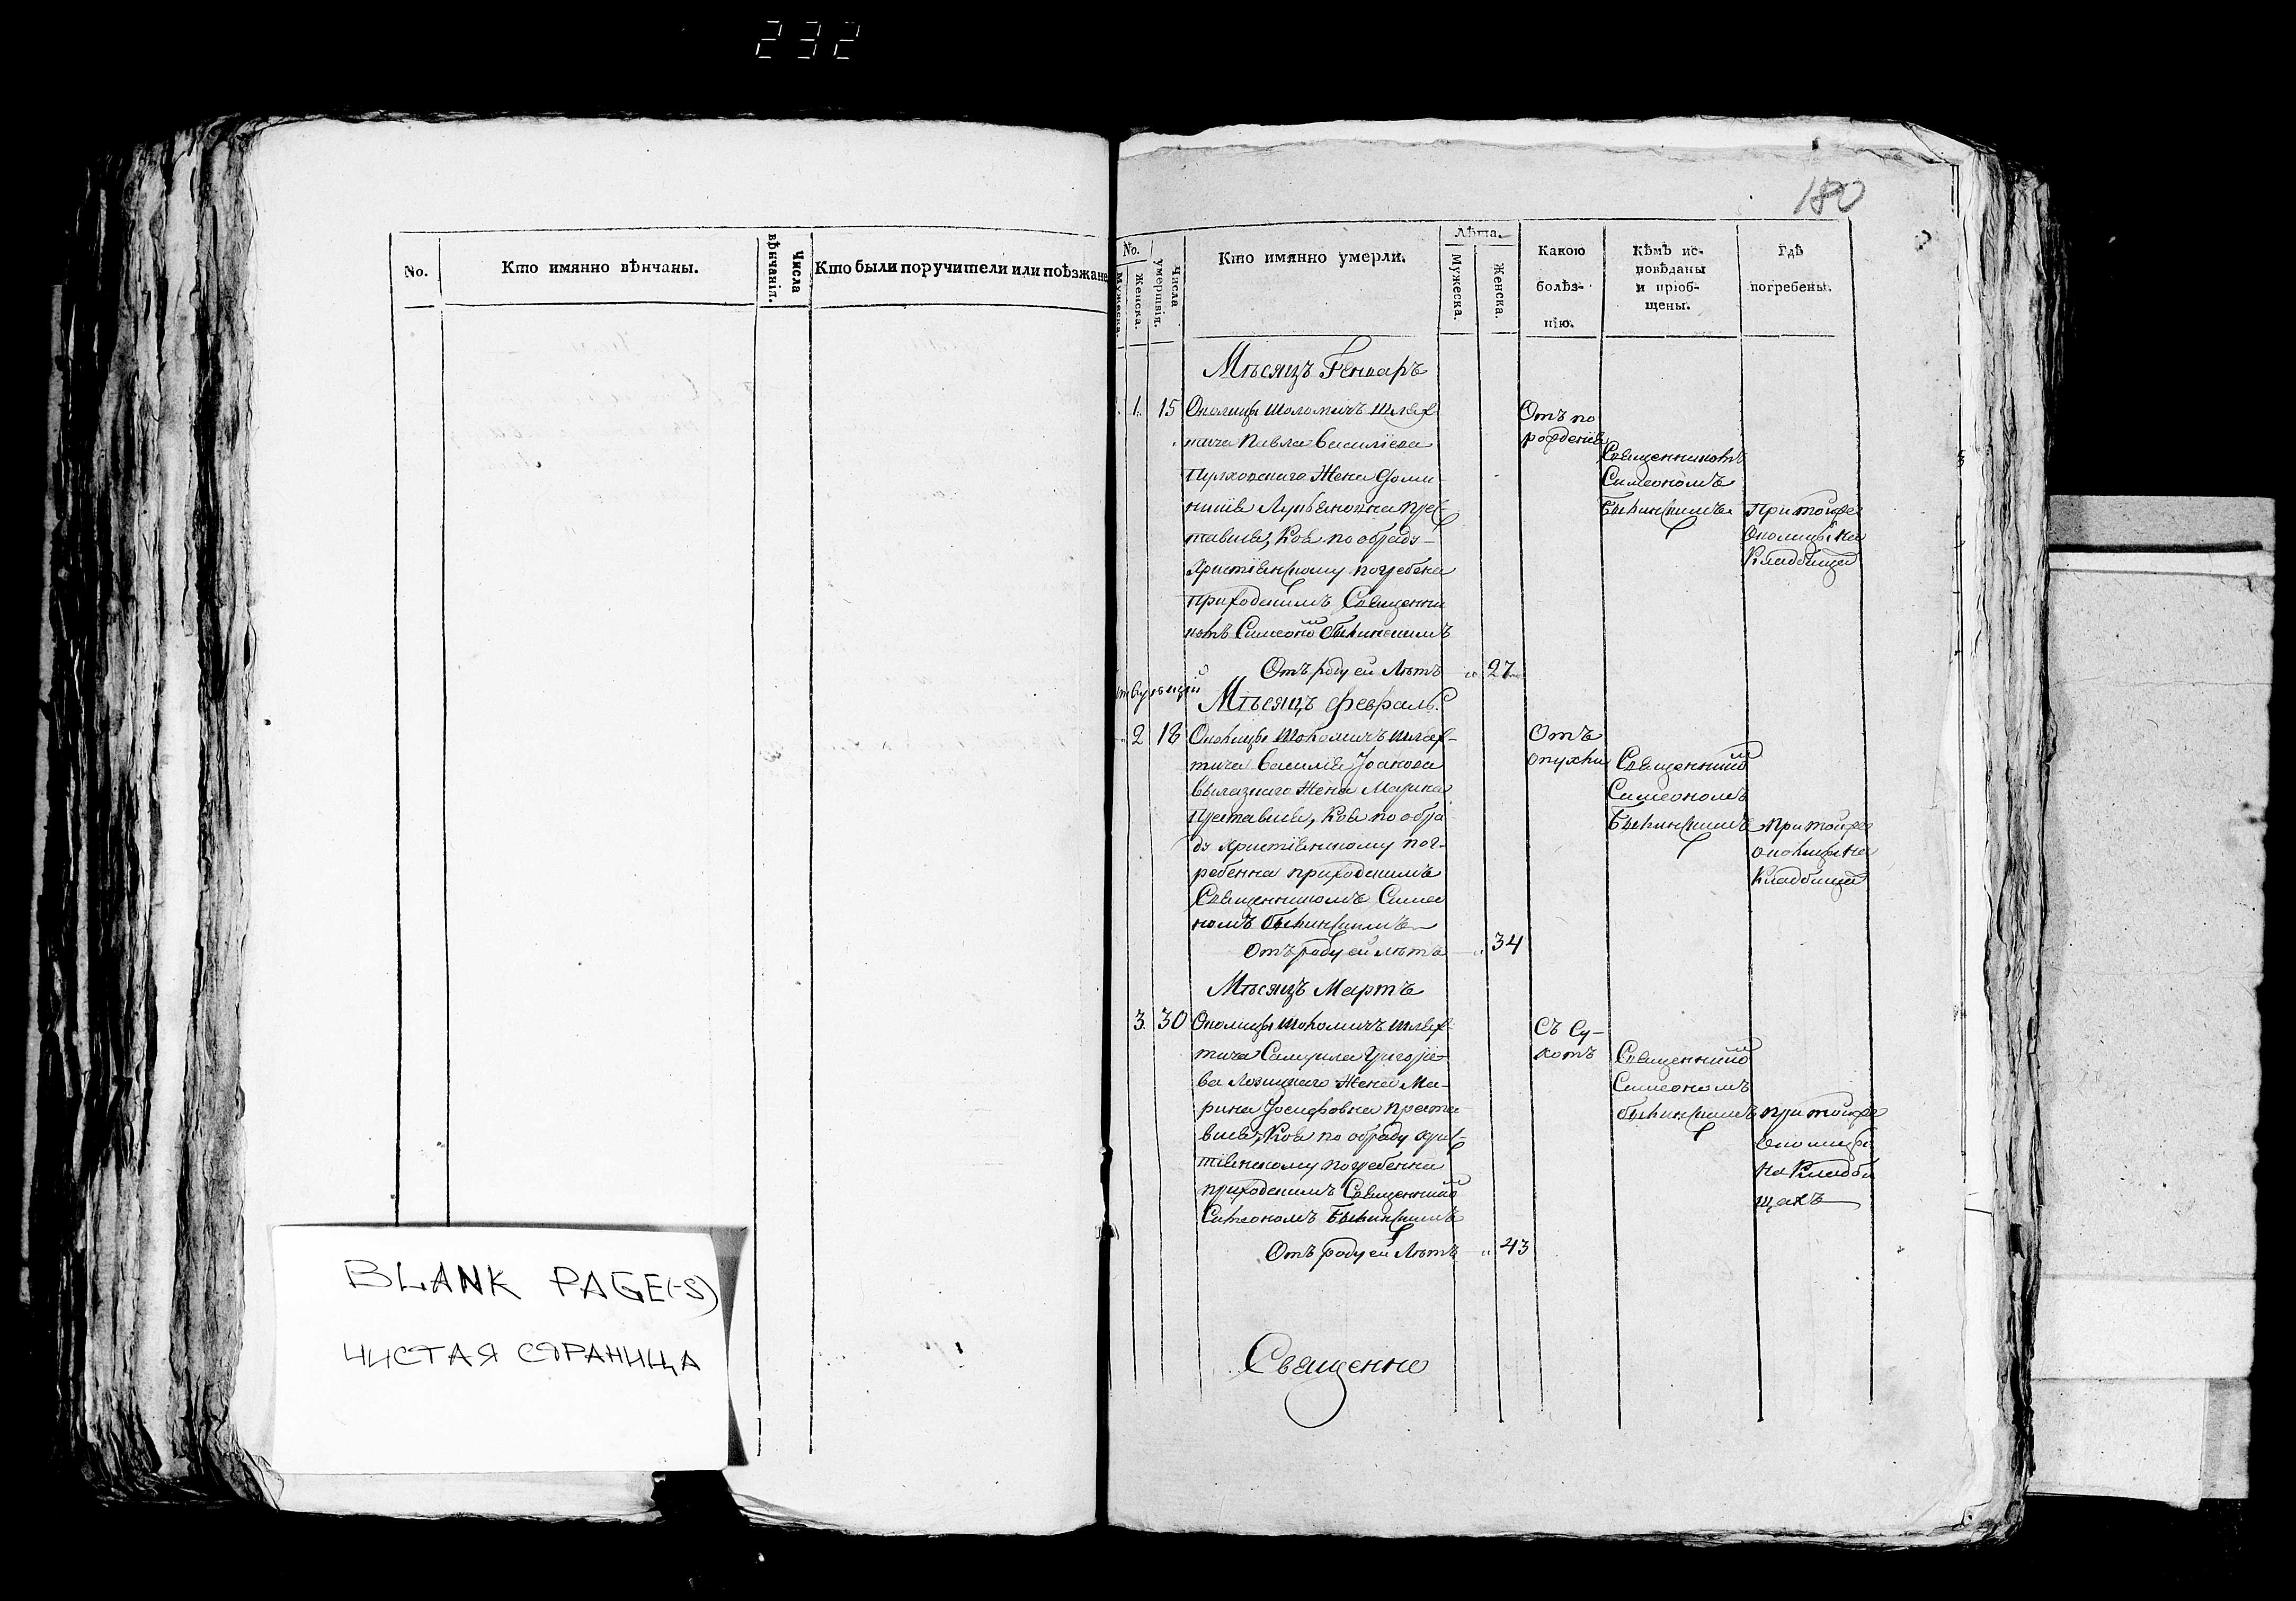 232
180
No.
Кто имянно вѣнчаны.
Числа вѣнчанія.
Кто были поручители или поѣзжане
No.
Мужеска.
Женска.
Числа умертвія.
Кто имянно умерли.
Лѣта.
Мужеска.
Женска.
Какою
болѣз-
нію.
Кѣмъ ис-
повѣданы
и пріоб-
щены.
Гдѣ
погребены.
Мѣсяцъ Генваръ
1. 15 Околицы шлях-
тича Павла Василіева
Жена
преС
тавися, Коя по обряду
Христіянскому погребена
приходскимъ Священни
комъ Симеоно
Отъ роду ей Лѣтъ 27
Отъ по
рожденія
Священникомъ
Симеономъ
При тойже
Околицы на
Кладбищѣ
Мѣсяцъ февраль
2 18 Околицы шлях-
тича Василія Іоанова
Жена Марина
Преставися, Коя по обря
ду Христіянскому пог-
ребенна приходскимъ
Священникомъ Симео
номъ
Отъ роду ей лѣтъ 34
Отъ
опухли
Священнико
Симеономъ
при тойже
околицы на
Кладбищѣ
Мѣсяцъ Мартъ
3. 30 Околицы шлях-
тича Самуила Григоріе-
ва Жена Ма-
рина Іосифовна преста
вися, Коя по обряду хрис-
тіянскому погребенна
приходскимъ Священнико
Симеономъ
Отъ роду ей Лѣтъ 43
Съ Су-
хотъ
Священнико
Симеономъ
при тойже
Околицы
на Кладби
щахъ
Священно
BLANK PAGE(-S)
ЧИСТАЯ СТРАНИЦА